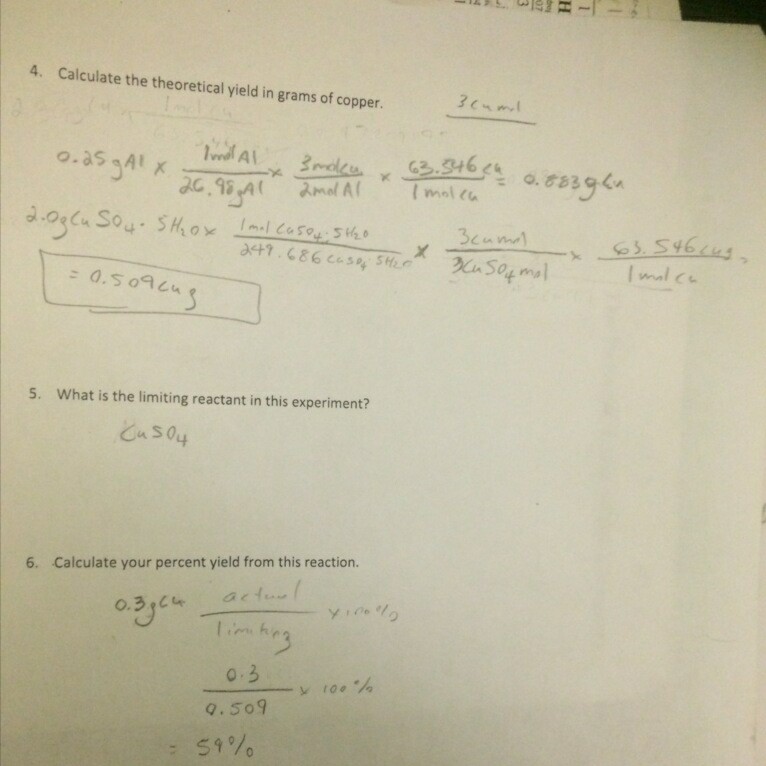 4. Calculate the theoretical yield in grams of copper.
3 Cu mol
0.25 g Al x 1 mol Al / 26.98 g Al x 3 mol Cu / 2 mol Al x 63.546 Cu / 1 mol Cu = 0.883 g Cu
2.0 g CuSO4 · 5H2O x 1 mol CuSO4 · 5H2O / 249.686 CuSO4 5H2O x 3 Cu mol / 3 CuSO4 mol x 63.546 Cu g / 1 mol Cu =
= 0.509 Cu g
5. What is the limiting reactant in this experiment?
CuSO4
6. Calculate your percent yield from this reaction.
0.3 g Cu actual / limiting x 100%
0.3 / 0.509 x 100%
= 59%